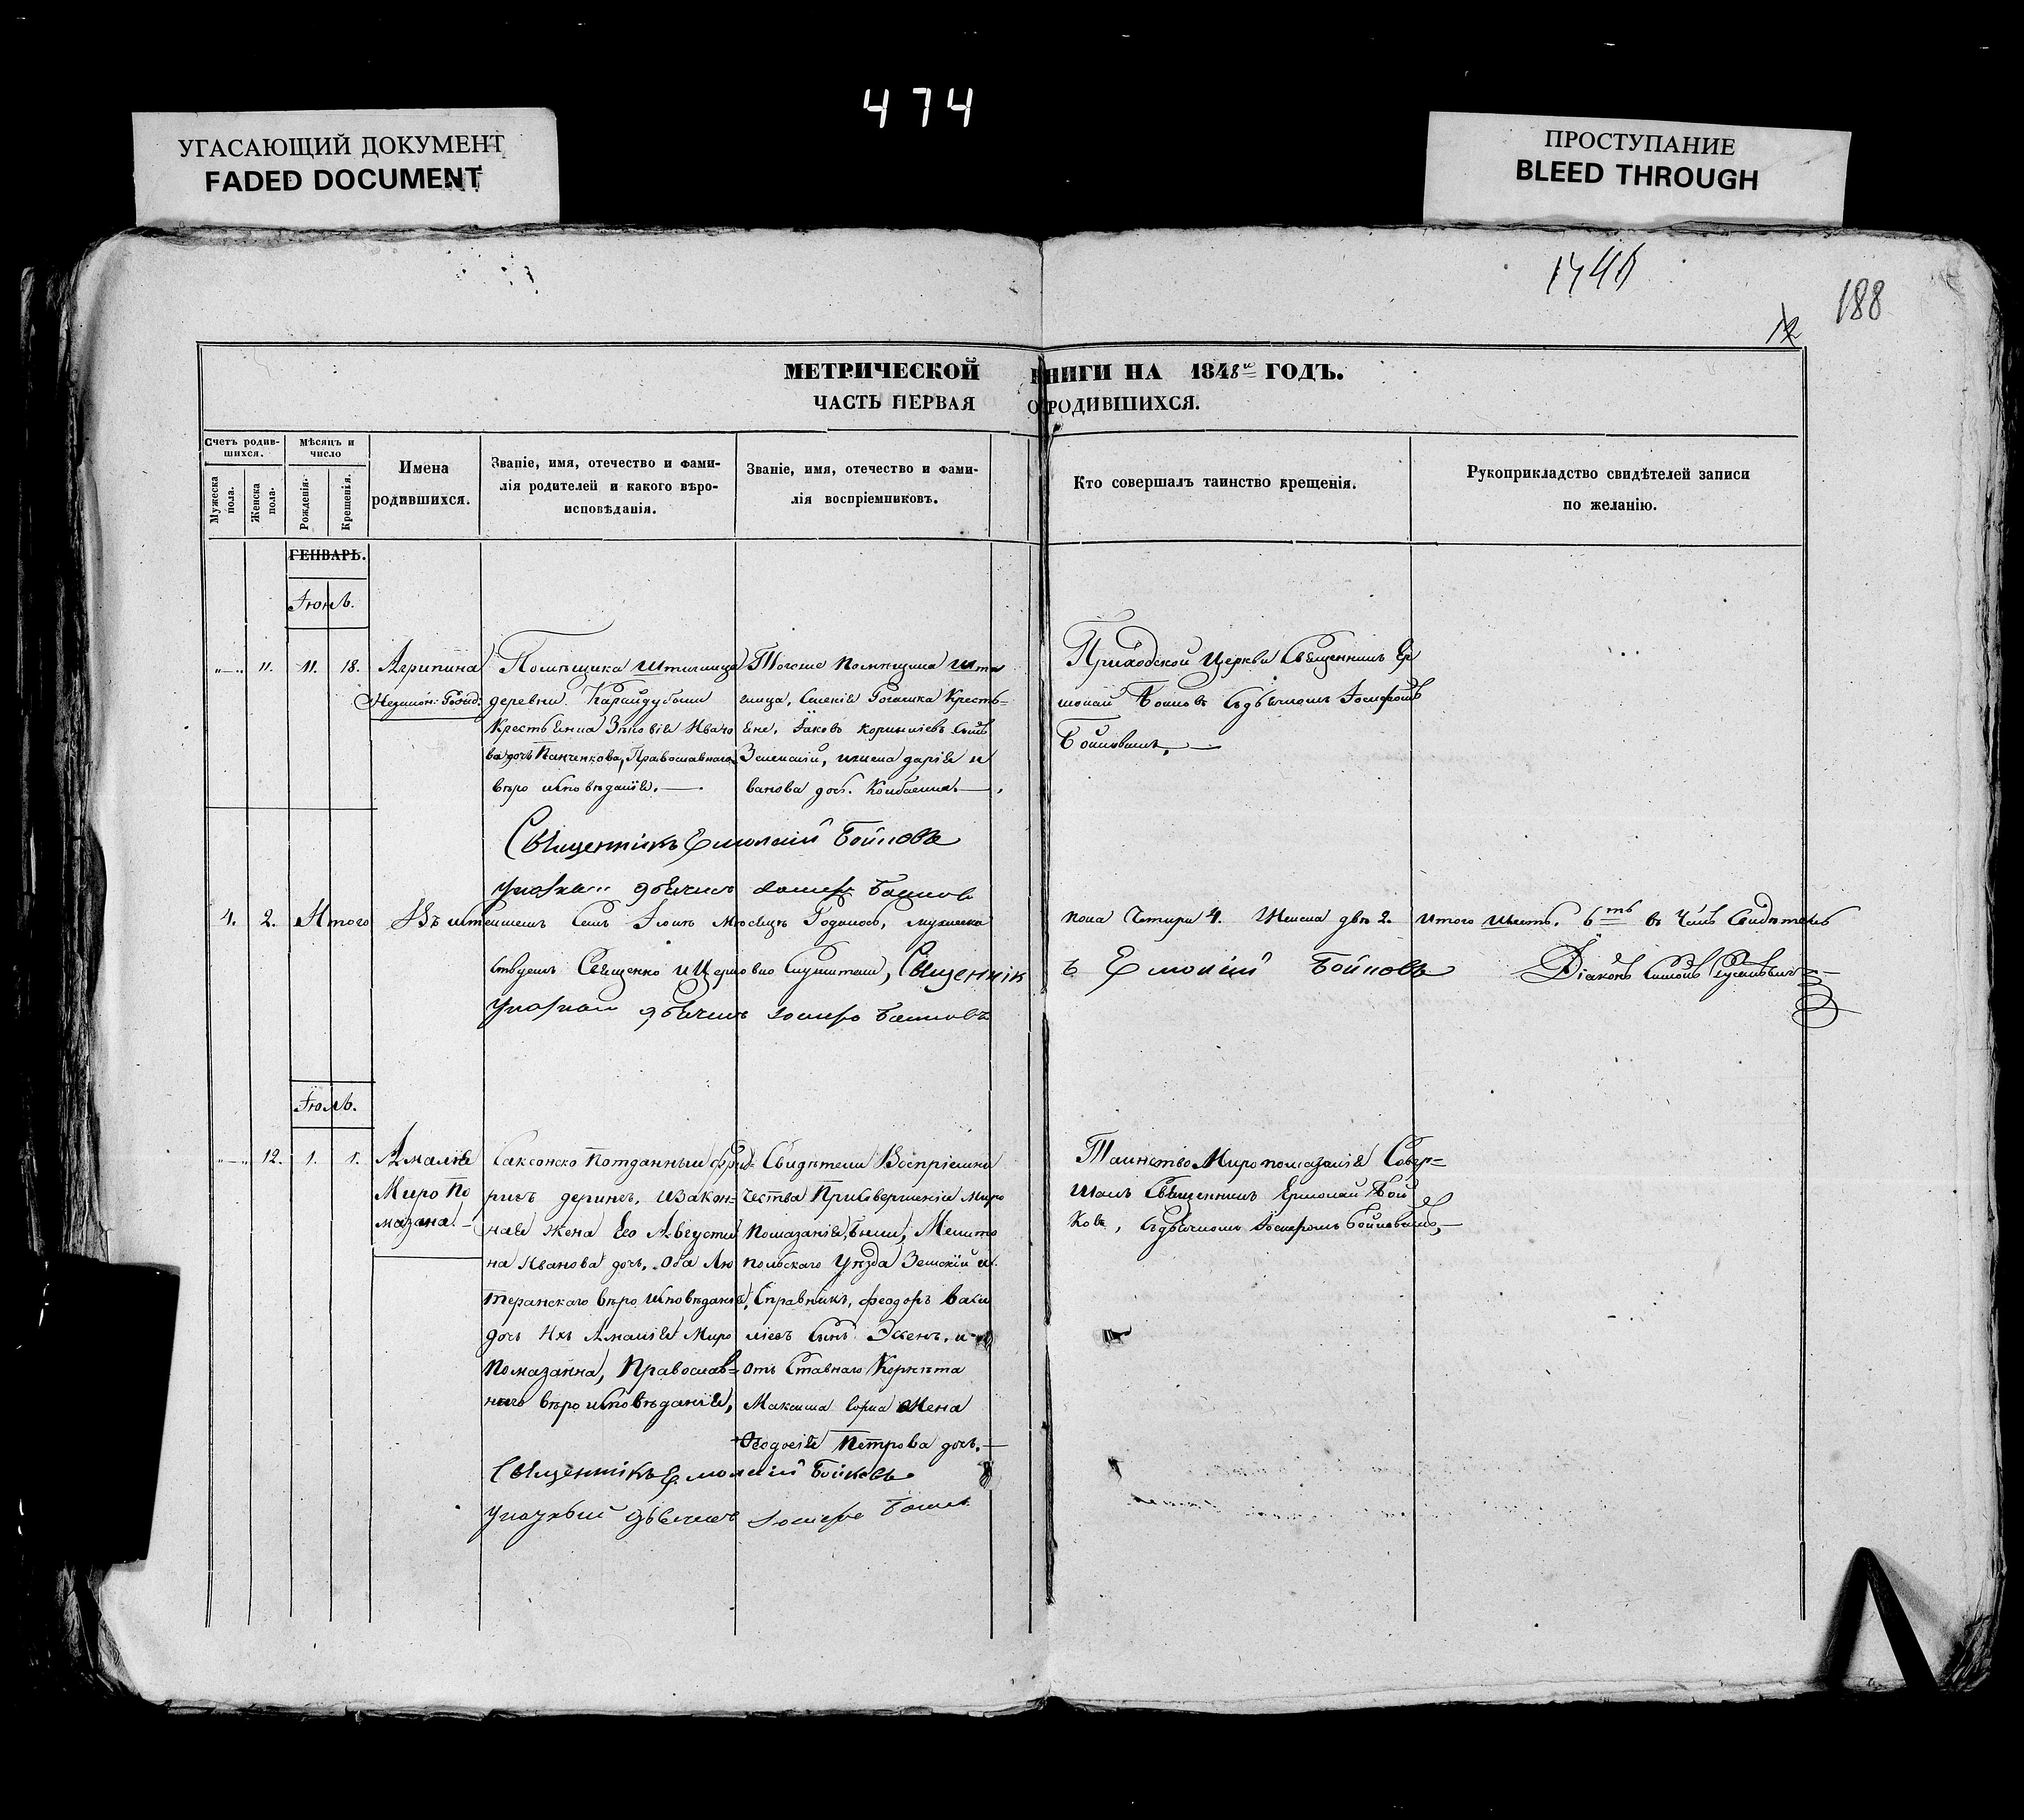 474
УГАСАЮЩИЙ ДОКУМЕНТ
FADED DOCUMENT
ПРОСТУПАНИЕ
BLEED THROUGH
188
12
МЕТРИЧЕСКОЙ КНИГИ НА 1848й ГОДЪ.
ЧАСТЬ ПЕРВАЯ О РОДИВШИХСЯ.
Счетъ родив-
шихся.
Мужеска
пола.
Женска
пола.
Мѣсяцъ и
число
Рожденія.
Крещенія.
Имена
родившихся.
Званіе, имя, отечество и фами-
лія родителей и какого вѣро-
исповѣданія.
Званіе, имя, отечество и фами-
лія воспріемниковъ.
Кто совершалъ таинство крещенія.
Рукоприкладство свидѣтелей записи
по желанію.
ГЕНВАРЬ.
Іюнь.
"—" 11. 11. 18.
Агрипина
Незакон: Рожд:
Помѣщика Штиглица
деревни
Крестьянка Зѣновія Ивано
ва дочь Панченкова, Православнаго
вѣро исповѣданія.—
Тогоже помѣщика Шти
глица, Крестья=
не, Іаковъ сынъ
и жена дарія и
ванова доч.
Приходской Церкви Священникъ Ер
молай Бойковъ съ дьячкомъ Іосифомъ
Бойковымъ.—
Священникъ Ермолай Бойковъ
Указный дьячекъ Іосифъ Бойковъ
4. 2. Итого
Въ Іюнѣ Мѣсяцѣ Родилось, мужеска
пола Четыри 4. Женска двѣ 2. Итого шесть. 6ть въ чемъ Свидѣтель
ствуемъ Священно и Церковно Служители, Священникъ Ермолай Бойковъ
Діаконъ
Указный дьячекъ Іосифъ Бойковъ
Іюль.
"—" 12. 1. 1.
Амалія
Миро По
мазана.—
Саксонско потданный Фрид=
рихъ герингъ, и закон=
ная жена его Августи
на Иванова дочь, Оба Лю
теранскаго вѣро исповѣданія,
дочь Ихъ Амалія Миро
Помазанна, Православ=
наго вѣро исповѣданія,
Свидѣтели Воспріемни
чества При Совершеніи Миро
помазанія, были, Мелито
польскаго Уѣзда Земскій и
справникъ, Феодоръ васи
ліевъ сынъ и
отъ Ставнаго Корнѣта
Максима жена
Феодосія Петрова дочь.—
Таинство Миропомазанія Совер=
шалъ Священникъ Ермолай Бой
ковъ, съ дьячкомъ Іосифомъ Бойковымъ,—
Священникъ Ермолай Бойковъ
Указный дьячекъ Іосифъ Бойковъ